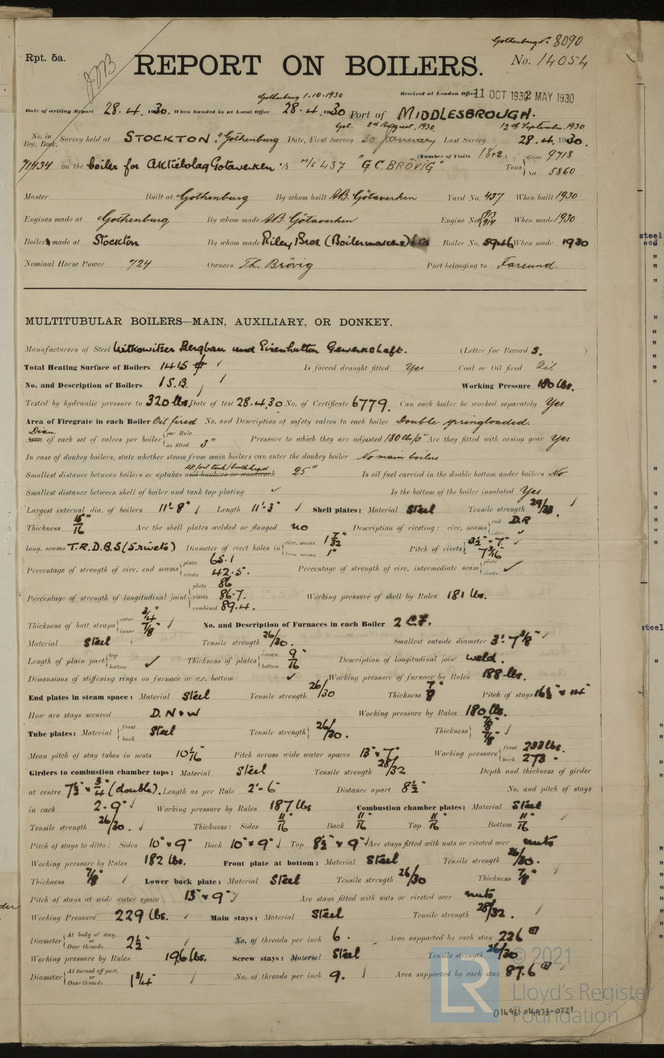 Gothenburg No. 8090
Rpt. 5a.
REPORT ON BOILERS.
No. 14054
Gothenburg 1.10.1930
Received at London Office 11 OCT 1930 2 MAY 1930
Date of writing Report 28.4.1930. When handed in at Local Office 28.4.1930 Port of MIDDLESBROUGH.
Got. 8th August, 1930. 12th September, 1930
No. in Reg. Book. Survey held at STOCKTON & Gothenburg Date, First Survey 30 January Last Survey 28.4.1930.
(Number of Visits 18+2) Gross 9718
71434 on the boiler for Aktiebolag Götaverken's M/S 437 "G.C. BRÖVIG" Tons Net 5860
Master Built at Gothenburg By whom built AB. Götaverken Yard No. 437 When built 1930
Engines made at Gothenburg By whom made AB Götaverken Engine No. 913 914 When made 1930
Boiler made at Stockton By whom made Riley Bros (Boilermakers) Ltd Boiler No. 5946 When made 1930
Nominal Horse Power 724 Owners Th. Brövig Port belonging to Farsund
MULTITUBULAR BOILERS—MAIN, AUXILIARY, OR DONKEY.
Manufacturers of Steel Witkowitzer Bergbau und Eisenhutten Gewerkschaft. (Letter for Record S. )
Total Heating Surface of Boilers 1445 ф Is forced draught fitted Yes Coal or Oil fired Oil
No. and Description of Boilers 1 S.B. Working Pressure 180 lbs.
Tested by hydraulic pressure to 320 lbs. Date of test 28.4.30 No. of Certificate 6779. Can each boiler be worked separately Yes
Area of Firegrate in each Boiler Oil fired No. and Description of safety valves to each boiler Double springloaded.
Diam of each set of valves per boiler per Rule as fitted 3" Pressure to which they are adjusted 180 lbs/□" Are they fitted with easing gear Yes
In case of donkey boilers, state whether steam from main boilers can enter the donkey boiler No main boilers
Smallest distance between boilers or uptakes and bunkers or woodwork 25" Is oil fuel carried in the double bottom under boilers No
Smallest distance between shell of boiler and tank top plating ✓ Is the bottom of the boiler insulated Yes
Largest internal dia. of boilers 11'-8" Length 11'-3" Shell plates: Material Steel Tensile strength 29/33.
Thickness 15/16" Are the shell plates welded or flanged no Description of riveting: circ. seams end D.R inter. ✓
long. seams T.R.D.B.S (5 rivets) Diameter of rivet holes in circ. seams 1 7/32" long. seams 1" Pitch of rivets 3½" - 7" 7 7/16
Percentage of strength of circ. end seams plate 65.1 rivets 42.5. Percentage of strength of circ. intermediate seam plate rivets ✓
Percentage of strength of longitudinal joint plate 86 rivets 86.7. combined 89.4. Working pressure of shell by Rules 181 lbs.
Thickness of butt straps outer 3/4" inner 7/8" No. and Description of Furnaces in each Boiler 2 C.F.
Material Steel Tensile strength 26/30. Smallest outside diameter 3'-7 3/8"
Length of plain part top bottom ✓ Thickness of plates crown bottom 9/16" Description of longitudinal joint weld.
Dimensions of stiffening rings on furnace or c.c. bottom ✓ Working pressure of furnace by Rules 188 lbs.
End plates in steam space: Material Steel Tensile strength 26/30 Thickness 7/8" Pitch of stays 16½" × 14"
How are stays secured D.N & W Working pressure by Rules 180 lbs.
Tube plates: Material front back Steel Tensile strength 26/30. Thickness 7/8" 7/8"
Mean pitch of stay tubes in nests 10 1/16 Pitch across wide water spaces 13" × 7" Working pressure front 233 lbs. back 273 -
Girders to combustion chamber tops: Material Steel Tensile strength 28/32 Depth and thickness of girder
at centre 7½" × 3/4" (double). Length as per Rule 2'-6" Distance apart 8½" No. and pitch of stays
in each 2-9" Working pressure by Rules 187 lbs Combustion chamber plates: Material Steel
Tensile strength 26/30. Thickness: Sides 11/16" Back 11/16" Top 11/16" Bottom 11/16"
Pitch of stays to ditto: Sides 10" × 9" Back 10" × 9" Top 8½" × 9" Are stays fitted with nuts or riveted over nuts
Working pressure by Rules 182 lbs. Front plate at bottom: Material Steel Tensile strength 26/30.
Thickness 7/8" Lower back plate: Material Steel Tensile strength 26/30 Thickness 7/8"
Pitch of stays at wide water space 13" × 9" Are stays fitted with nuts or riveted over nuts
Working Pressure 229 lbs. Main stays: Material Steel Tensile strength 28/32.
Diameter At body of stay, or Over threads 2½" No. of threads per inch 6. Area supported by each stay 226 □"
Working pressure by Rules 196 lbs. Screw stays: Material Steel Tensile strength 26/30
Diameter At turned off part, or Over threads 1 3/4" No. of threads per inch 9. Area supported by each stay 87.6 □"
© 2021
LR Lloyd's Register Foundation
014461-014473-0221